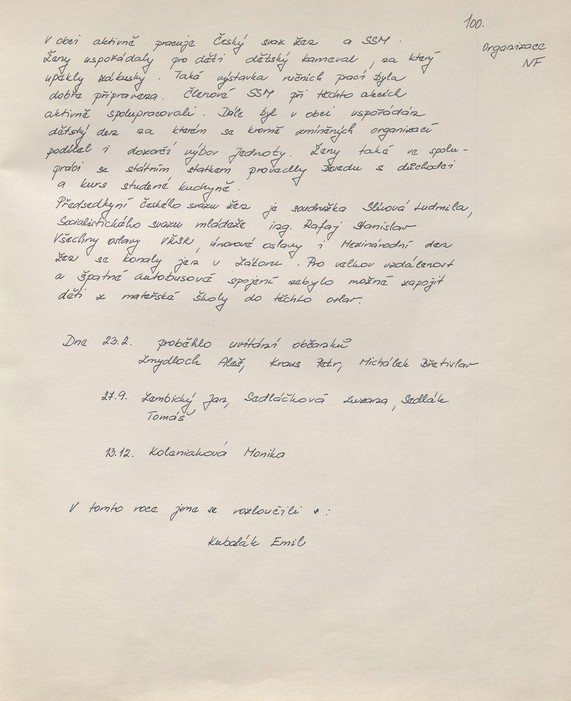 100.
Organizace
NF
V obci aktivně pracuje Český svaz žen a SSM.
Ženy uspořádaly pro děti dětský karneval, na který
upekly zákusky. Také výstavka ručních prací byla
dobře připravena. Členové SSM při těchto akcích
aktivně spolupracovali. Dále byl v obci uspořádán
dětský den na kterém se kromě zmíněných organizací
podílel i dozorčí výbor Jednoty. Ženy také ve spolu-
práci se státním statkem provedly besedu s důchodci
a kurs studené kuchyně.
Předsedkyní Českého svazu žen je soudružka Slívová Ludmila,
Socialistického svazu mládeže ing. Rafaj Stanislav
Všechny oslavy VŘSR, únorové oslavy i Mezinárodní den
žen se konaly jen v Zátoru. Pro velkou vzdálenost
a špatné autobusové spojení nebylo možné zapojit
děti z mateřské školy do těchto oslav.
Dne 23.2. proběhlo uvítání občánků
Znydloch Aleš, Kraus Petr, Michálek Břetislav
27.9. Zambický Jan, Sedláčková Zuzana, Sedlák
Tomáš
13.12. Kolaniaková Monika
V tomto roce jsme se rozloučili s:
Kubalák Emil